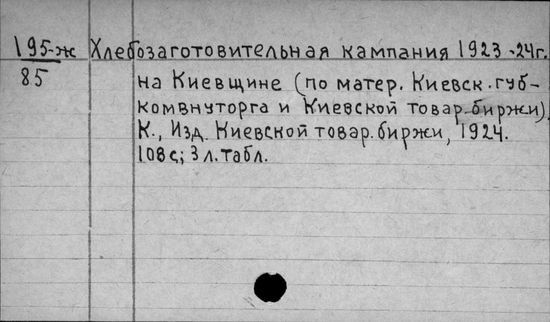 195-ж Хлебозаготовительная кампания 1923-24г.
85
на Киевщине (по матер. Киевск. губ-
комвнуторга и Киевской товар. биржи).
К., Изд. Киевской товар. биржи, 1924.
108с; 3 л. табл.